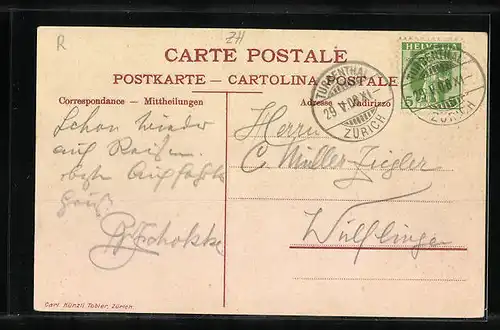 R
ZH
CARTE POSTALE
POSTKARTE – CARTOLINA POSTALE
Correspondance – Mittheilungen
Adresse
Indirizzo
HELVETIA
5
TURBENTHAL
29 V 08 XI
ZÜRICH
TURBENTHAL
29 V 08 XI
ZÜRICH
Schon wieder
auf Reisen.
Herrn
C. Müller-Ziegler
Wülflingen
Carl Künzli Tobler, Zürich